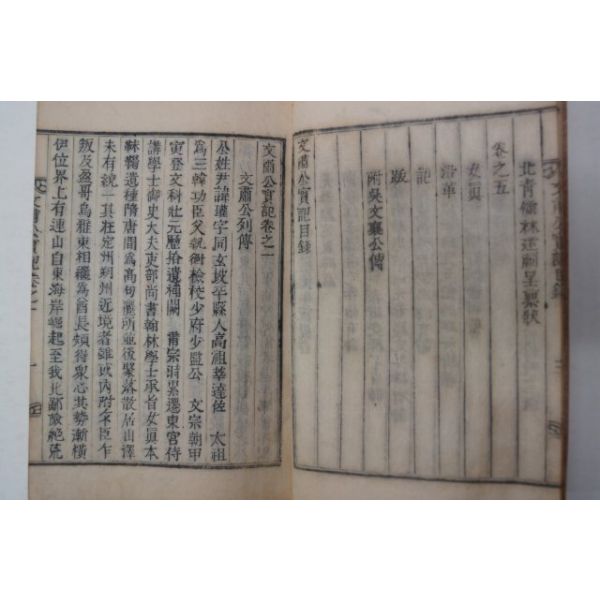 北青儒林建祠呈禀狀
卷之五
女眞
沿革
記
跋
附吳文襄公傳
文肅公實記目錄
文肅公實記卷之一
文肅公列傳
公姓尹諱瓘字同玄坡平縣人高祖莘達佐 太祖
爲三韓功臣父執衡檢校少府少監公 文宗朝甲
寅登文科壯元歷拾遺補闕 肅宗時累遷東宮侍
講學士御史大夫吏部尚書翰林學士承旨女眞本
靺鞨遺種隋唐間爲高句麗所並後聚落散居山澤
未有統一其在定州朔州近境者雖或內附乍臣乍
叛及盈哥烏雅束相繼爲酋長頗得衆心其勢漸橫
伊位界上有連山自東海岸崛起至我北鄙險絶荒